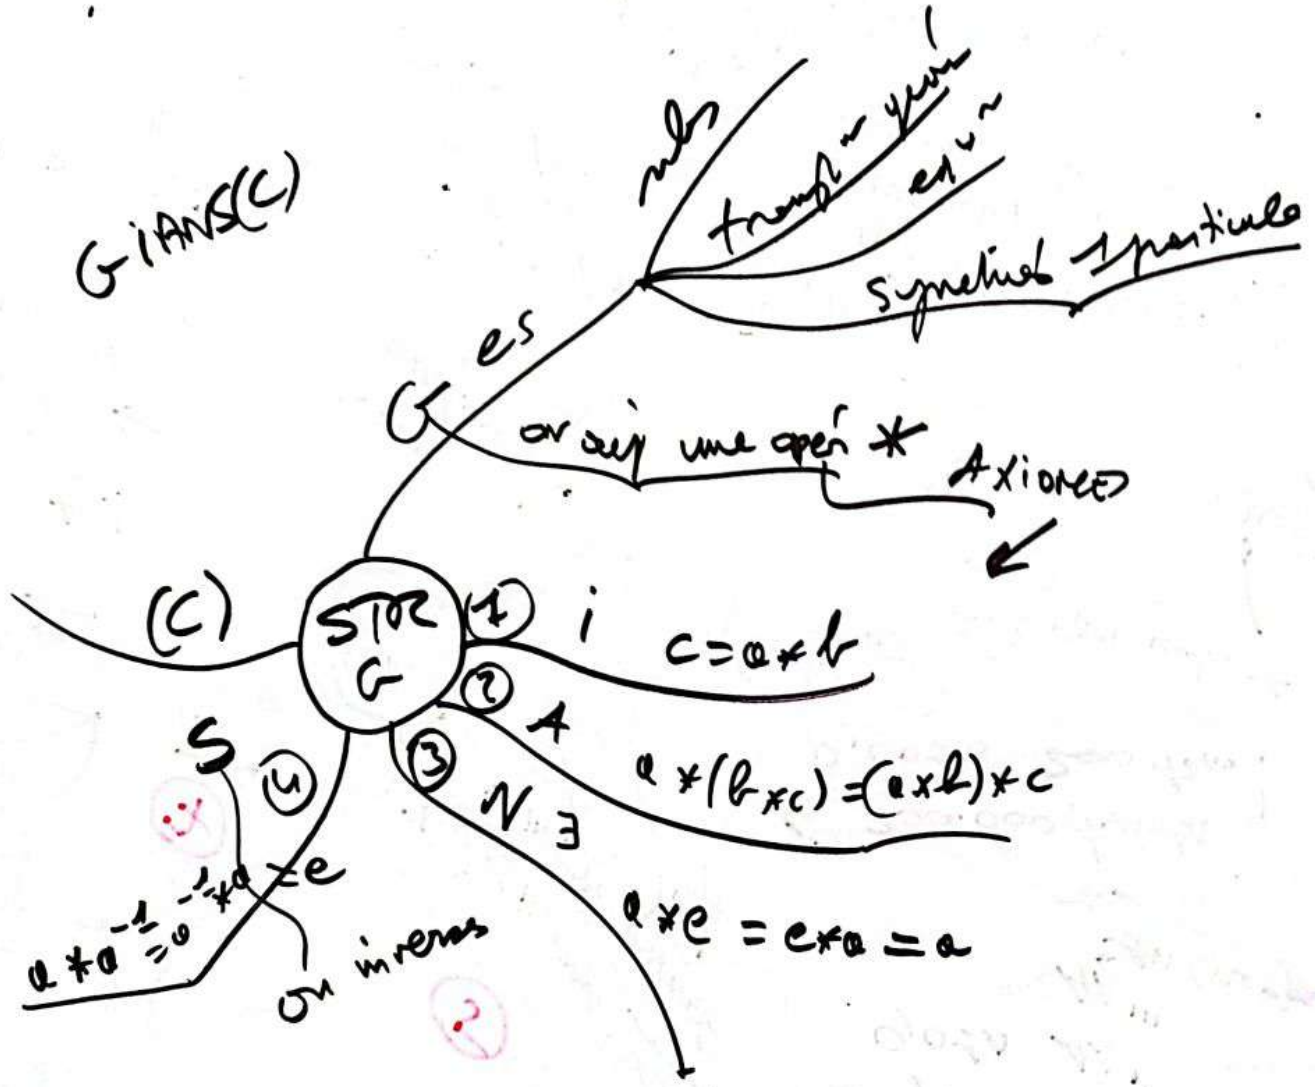 GiANS(C)
nbs
transf° géom
eq°
symétries 1 particule
G es
on déf une opér *
Axiomes
(C)
STR
G
① i
c = a * b
② A
a * (b * c) = (a * b) * c
③ N ∃
a * e = e * a = a
S ④
a * a⁻¹ = a⁻¹ * a = e
ou inverse